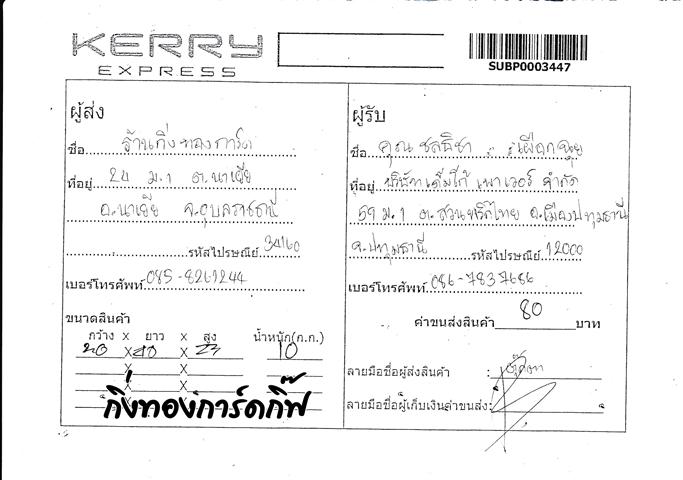 KERRY
EXPRESS
SUBP0003447
ผู้ส่ง
ชื่อ ร้านกิ่งทองการ์ด
ที่อยู่ 24 ม.1 ต.นาเยีย
อ.นาเยีย จ.อุบลราชธานี
รหัสไปรษณีย์ 34160
เบอร์โทรศัพท์ 085-8261244
ขนาดสินค้า
กว้าง x ยาว x สูง น้ำหนัก(ก.ก.)
x x 10
x x
x x
x
กิ่งทองการ์ดกิ๊ฟ
ผู้รับ
ชื่อ คุณ ชลธิชา เผือกจุย
ที่อยู่ บริษัท เพาเวอร์ จำกัด
59 ม.1 ต.สวนพริกไทย อ.เมืองปทุมธานี
จ.ปทุมธานี รหัสไปรษณีย์ 12000
เบอร์โทรศัพท์ 086-7837686
ค่าขนส่งสินค้า 80 บาท
ลายมือชื่อผู้ส่งสินค้า :
ลายมือชื่อผู้เก็บเงินค่าขนส่ง: